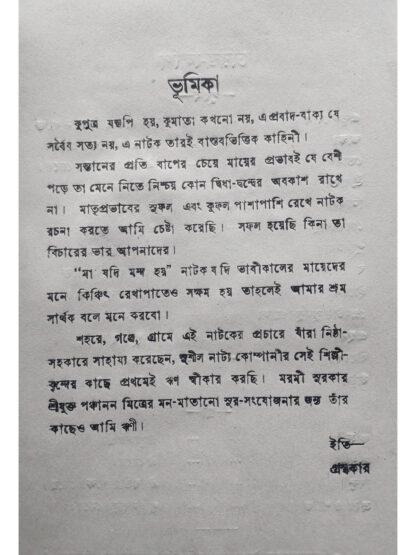 ভূমিকা
কুপুত্র যদ্যপি হয়, কুমাতা কখনো নয়, এ প্রবাদ-বাক্য যে
সর্বৈব সত্য নয়, এ নাটক তারই বাস্তবভিত্তিক কাহিনী।
সন্তানের প্রতি বাপের চেয়ে মায়ের প্রভাবই যে বেশী
পড়ে তা মেনে নিতে নিশ্চয় কোন দ্বিধা-দ্বন্দ্বের অবকাশ রাখে
না। মাতৃপ্রভাবের সুফল এবং কুফল পাশাপাশি রেখে নাটক
রচনা করতে আমি চেষ্টা করেছি। সফল হয়েছি কিনা তা
বিচারের ভার আপনাদের।
“মা যদি মন্দ হয়” নাটক যদি ভাবীকালের মায়েদের
মনে কিঞ্চিৎ রেখাপাতেও সক্ষম হয় তাহলেই আমার শ্রম
সার্থক বলে মনে করবো।
শহরে, গঞ্জে, গ্রামে এই নাটকের প্রচারে যাঁরা নিষ্ঠা-
সহকারে সাহায্য করেছেন, সুশীল নাট্য কোম্পানীর সেই শিল্পী-
বৃন্দের কাছে প্রথমেই ঋণ স্বীকার করছি। মরমী সুরকার
শ্রীযুক্ত পঞ্চানন মিত্রের মন-মাতানো সুর-সংযোজনার জন্য তাঁর
কাছেও আমি ঋণী।
ইতি—
গ্রন্থকার